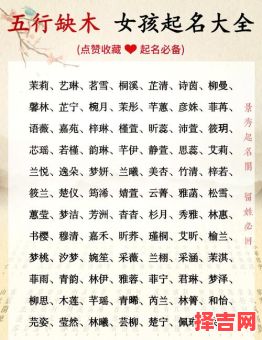 五行缺木 女孩起名大全
(点赞收藏❤起名必备)
茉莉、艺琳、茗雪、桐溪、芷清、诗茵、柳曼、
馨林、芷宁、椀月、茉彤、芊蕙、彦姝、菲苒、
语薇、嘉苑、梓琳、槿萱、昕蕊、沛萱、筱玥、
芯瑶、若槿、韵琳、芊伊、静萱、思蕊、艾莉、
兰悦、逸朵、梦妍、兰曦、美杏、竹清、梓若、
筱兰、楚仪、筠浠、婧萱、云菁、雅菡、松雪、
蕙莹、梦洁、芳洲、杏杏、杉月、秀雅、林惠、
书樱、穆清、嘉禾、昕荞、瑾桐、艾昕、榆兰、
梦桃、汐梦、婉笙、采薇、兰栩、采涵、茉淇、
菲雨、青韵、林伊、雅蓉、芷宁、君琳、梦泽、
柳思、木莲、芊瑶、青晞、芮兰、林菁、和怡、
芫姿、莹然、林曦、芸柳、楚宁、佩
景秀起名阁
留姓必回
择吉网